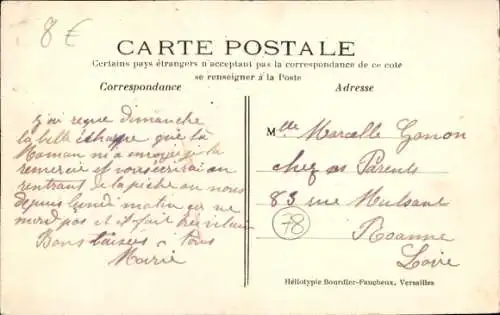 8 €
CARTE POSTALE
Certains pays étrangers n'acceptant pas la correspondance de ce coté
se renseigner à la Poste
Correspondance
Adresse
J'ai reçue dimanche
la belle écharpe que ta
Maman m'a envoyé je la
remercie et vous écrirai en
rentrant de la pêche ou nous
depuis lundi matin ça ne
mord pas et il fait très vilain
Bons baisers à tous
Marie
Mlle Marcelle Gonon
chez ses Parents
83 rue Mulsant
78
Roanne
Loire
Héliotypie Bourdier-Faucheux, Versailles